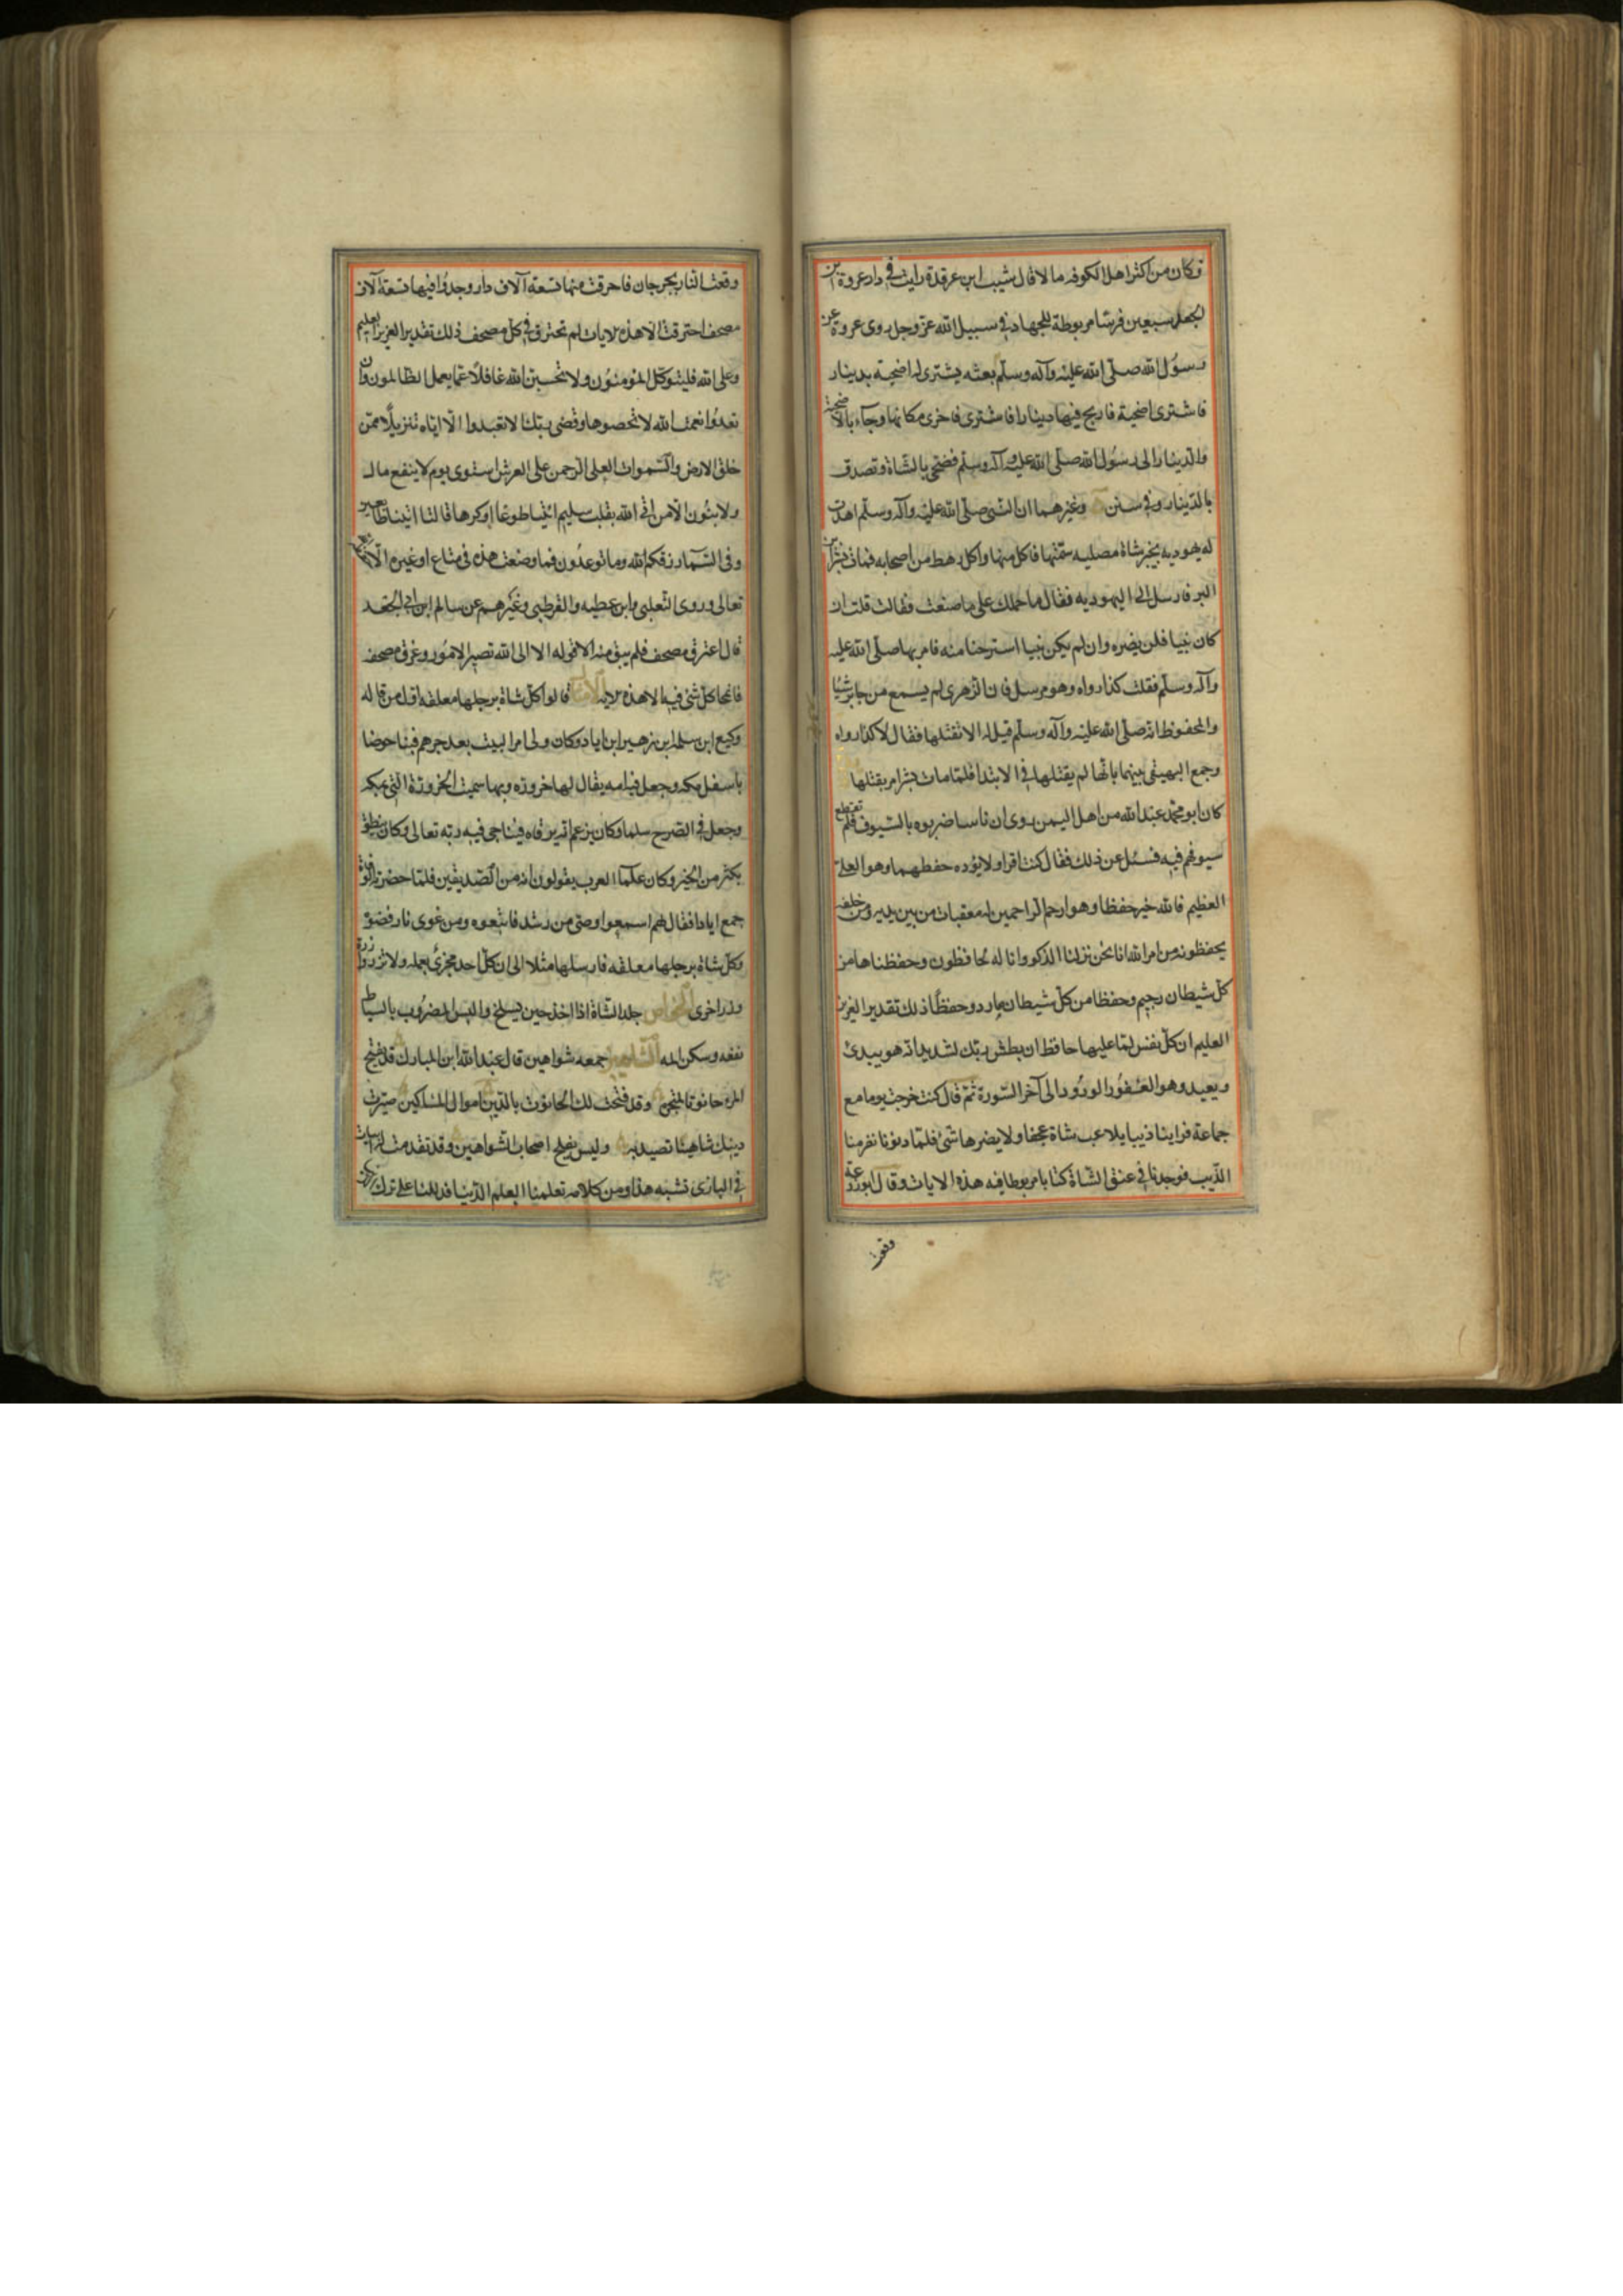 وكان من اكثر اهل الكوفه مالا قال شبيب ابن عرقدة رايت في دار عروة بن
الجعد سبعين فرسا مربوطة للجهاد في سبيل الله عز وجل روى عروة عن
رسول الله صلى الله عليه وآله وسلم بعثه يشترى له اضحية بدينار
فاشترى اضحية فاربح فيها دينارا فاشترى اخرى مكانها وجاء بالاضحية
والدينار الى رسول الله صلى الله عليه وآله وسلم فضحى بالشاة وتصدق
بالدينار وفي سنن وغيرهما ان النبى صلى الله عليه وآله وسلم اهدت
له يهوديه بخيبر شاة مصليه سمتها فاكل منها واكل رهط من اصحابه فمات بشر ابن
البر فارسل الى اليهوديه فقال ما حملك على ما صنعت فقالت قلت ان
كان نبيا فلن يضره وان لم يكن نبيا استرحنا منه فامر بها صلى الله عليه
وآله وسلم فقتلت كذا رواه وهو مرسل فان الزهرى لم يسمع من جابر شيا
والمحفوظ انه صلى الله عليه وآله وسلم قيل له الا تقتلها فقال لا كذا رواه
وجمع البيهقى بينهما بانها لم يقتلها في الابتدا فلما مات بشر امر بقتلها
كان ابو محمد عبد الله من اهل اليمن روى ان ناسا ضربوه بالسيوف فلم تقطع
سيوفهم فيه فسئل عن ذلك فقال كنت اقرا ولا يؤده حفظهما وهو العلى
العظيم فالله خير حفظا وهو ارحم الراحمين له معقبات من بين يديه ومن خلفه
يحفظونه من امر الله انا نحن نزلنا الذكر وانا له لحافظون وحفظناها من
كل شيطان رجيم وحفظا من كل شيطان مارد وحفظا ذلك تقدير العزيز
العليم ان كل نفس لما عليها حافظ ان بطش ربك لشديد انه هو يبدئ
ويعيد وهو الغفور الودود الى آخر السورة ثم قال كنت خرجت يوما مع
جماعة فراينا ذيبا يلاعب شاة عجفا ولا يضرها شئ فلما دنونا نفر منا
الذيب فوجدنا في عنق الشاة كتابا مربوطا فيه هذه الايات وقال ابو زرعة
وقعت
وقعت النار بجرجان فاحرقت منها تسعة آلاف دار وجدوا فيها تسعة آلاف
مصحف احترقت الا هذه الايات لم تحترق في كل مصحف ذلك تقدير العزيز العليم
وعلى الله فليتوكل المؤمنون ولا تحسبن الله غافلا عما يعمل الظالمون وان
تعدوا نعمت الله لا تحصوها وقضى ربك الا تعبدوا الا اياه تنزيلا ممن
خلق الارض والسموات العلى الرحمن على العرش استوى يوم لا ينفع مال
ولا بنون الا من اتى الله بقلب سليم ائتيا طوعا او كرها قالتا اتينا طائعين
وفى السماء رزقكم الله وما توعدون فما وضعت هذه فى متاع او غيره الا
تعالى وروى الثعلبى وابن عطيه والقرطبى وغيرهم عن سالم ابن ابي الجعد
قال احترق مصحف فلم يبق منه الا قوله الا الى الله تصير الامور وغرق مصحف
فانمحا كل شئ فيه الا هذه الايه قالوا كل شاة برجلها معلقه اول من قاله
وكيع ابن سلمه ابن زهير ابن اياد وكان ولى امر البيت بعد جرهم فبنا حوضا
باسفل مكه وجعل فيه امه يقال لها خروزه وبها سميت الخروزة التى بمكه
وجعل في الصرح سلما وكان يزعم انه يرقاه فيناجى فيه ربه تعالى وكان ينطق
بكثير من الخير وكان علماء العرب يقولون انه من الصديقين فلما حضرته الوفاة
جمع ايادا فقال لهم اسمعوا وصتى من رشد فاتبعوه ومن غوى فارفضوه
وكل شاة برجلها معلقه فارسلها مثلا الى ان كل احد مجزئ بعمله ولا تزر وازرة
وزر اخرى الخواص جلد الشاة اذا اخذ حين يسلخ والبس المضروب بالسياط
نفعه وسكن المه الشاهين جمعه شواهين قال عبد الله ابن المبارك قد يفتح
المرء حانوتا لمتجره وقد فتحت لك الحانوت بالدين اموال المساكين صيرت
دينك شاهينا تصيد به وليس يفلح اصحاب الشواهين وقد تقدمت له ابيات
في البازى تشبه هذا ومن كلامه تعلمنا العلم للدنيا فدللنا على ترك